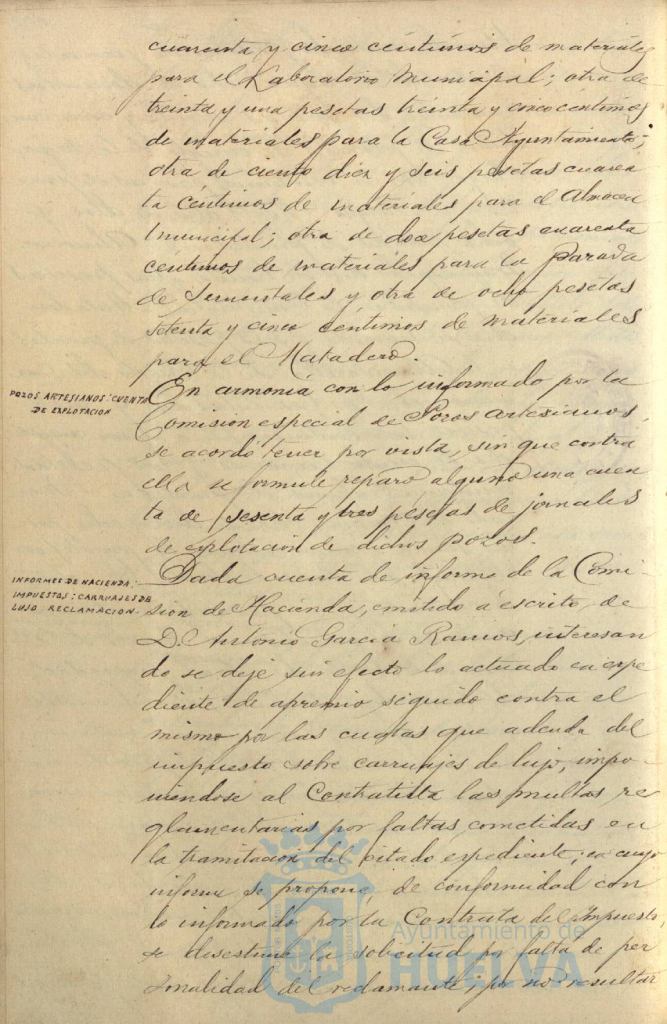 cuarenta y cinco céntimos de materiales
para el Laboratorio Municipal; otra de
treinta y una pesetas treinta y cinco céntimos
de materiales para la Casa Ayuntamiento;
otra de ciento diez y seis pesetas cuaren
ta céntimos de materiales para el Almacen
Municipal; otra de doce pesetas cuarenta
céntimos de materiales para la Parada
de Sementales y otra de ocho pesetas
setenta y cinco céntimos de materiales
para el Matadero.
POZOS ARTESIANOS: CUENTA
DE EXPLOTACION
En armonía con lo informado por la
Comision especial de Pozos Artesianos,
se acordó tener por vista, sin que contra
ella se formule reparo alguno una cuen
ta de sesenta y tres pesetas de jornales
de explotacion de dichos pozos.
INFORMES DE HACIENDA:
IMPUESTOS: CARRUAJES DE
LUJO RECLAMACION.
Dada cuenta de informe de la Comi-
sion de Hacienda, emitido á escrito de
D. Antonio Garcia Ramos, interesan
do se deje sin efecto lo actuado en espe
diente de apremio seguido contra el
mismo por las cuotas que adeuda del
impuesto sobre carruajes de lujo, impo-
niendose al Contratista las multas re
glamentarias por faltas cometidas en
la tramitacion del citado espediente; en cuyo
informe se propone, de conformidad con
lo informado por la Contrata del Impuesto,
se desestime la solicitud por falta de per
sonalidad del reclamante, por no resultar
Ayuntamiento de
HUELVA